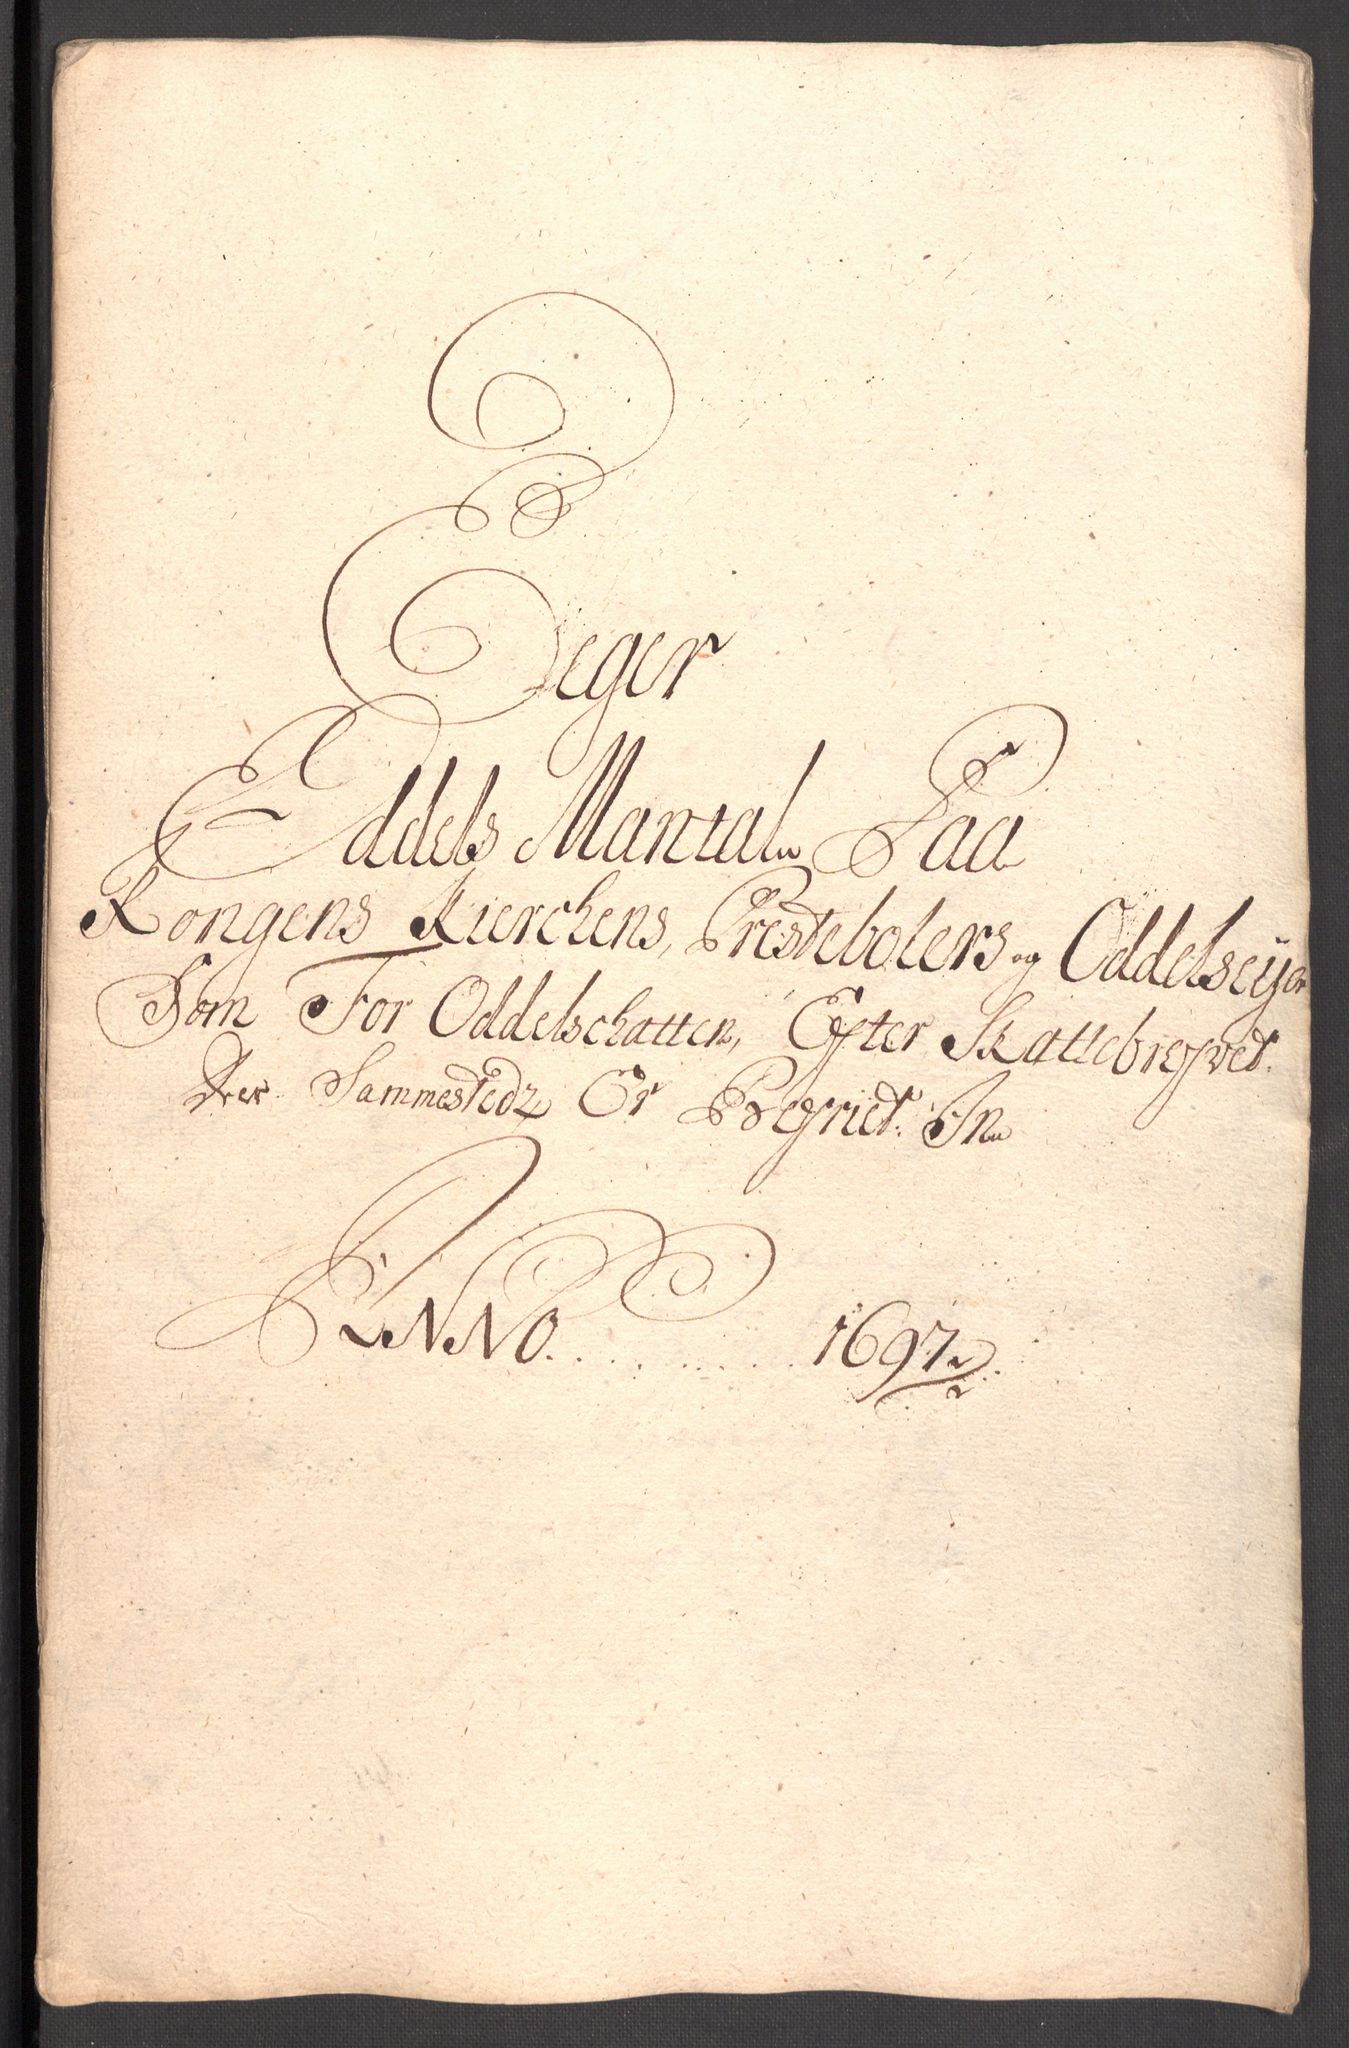 Eeger
Oddels Mantal Paa
Kongens Kierchens, Prestebolers og Oddelseyer
Som For Oddelschatten, Efter Skattebrefvet.
Der Sammestedz Er Befriet. In
ANNO. . . . . . . . . 1697